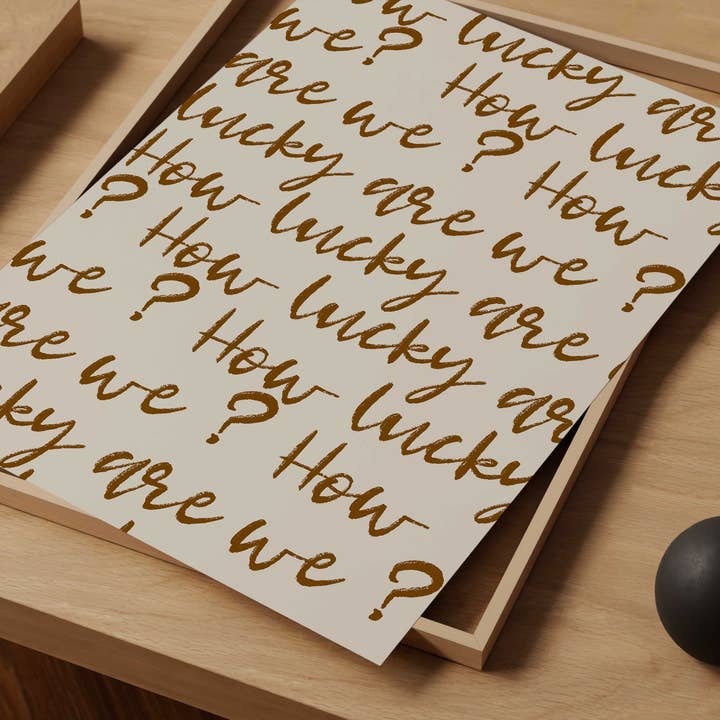 How lucky are
we ? How lucky
are we ? How
lucky are we ?
How lucky are
? How lucky are
we ? How lucky
are we ? How
ky are we ?